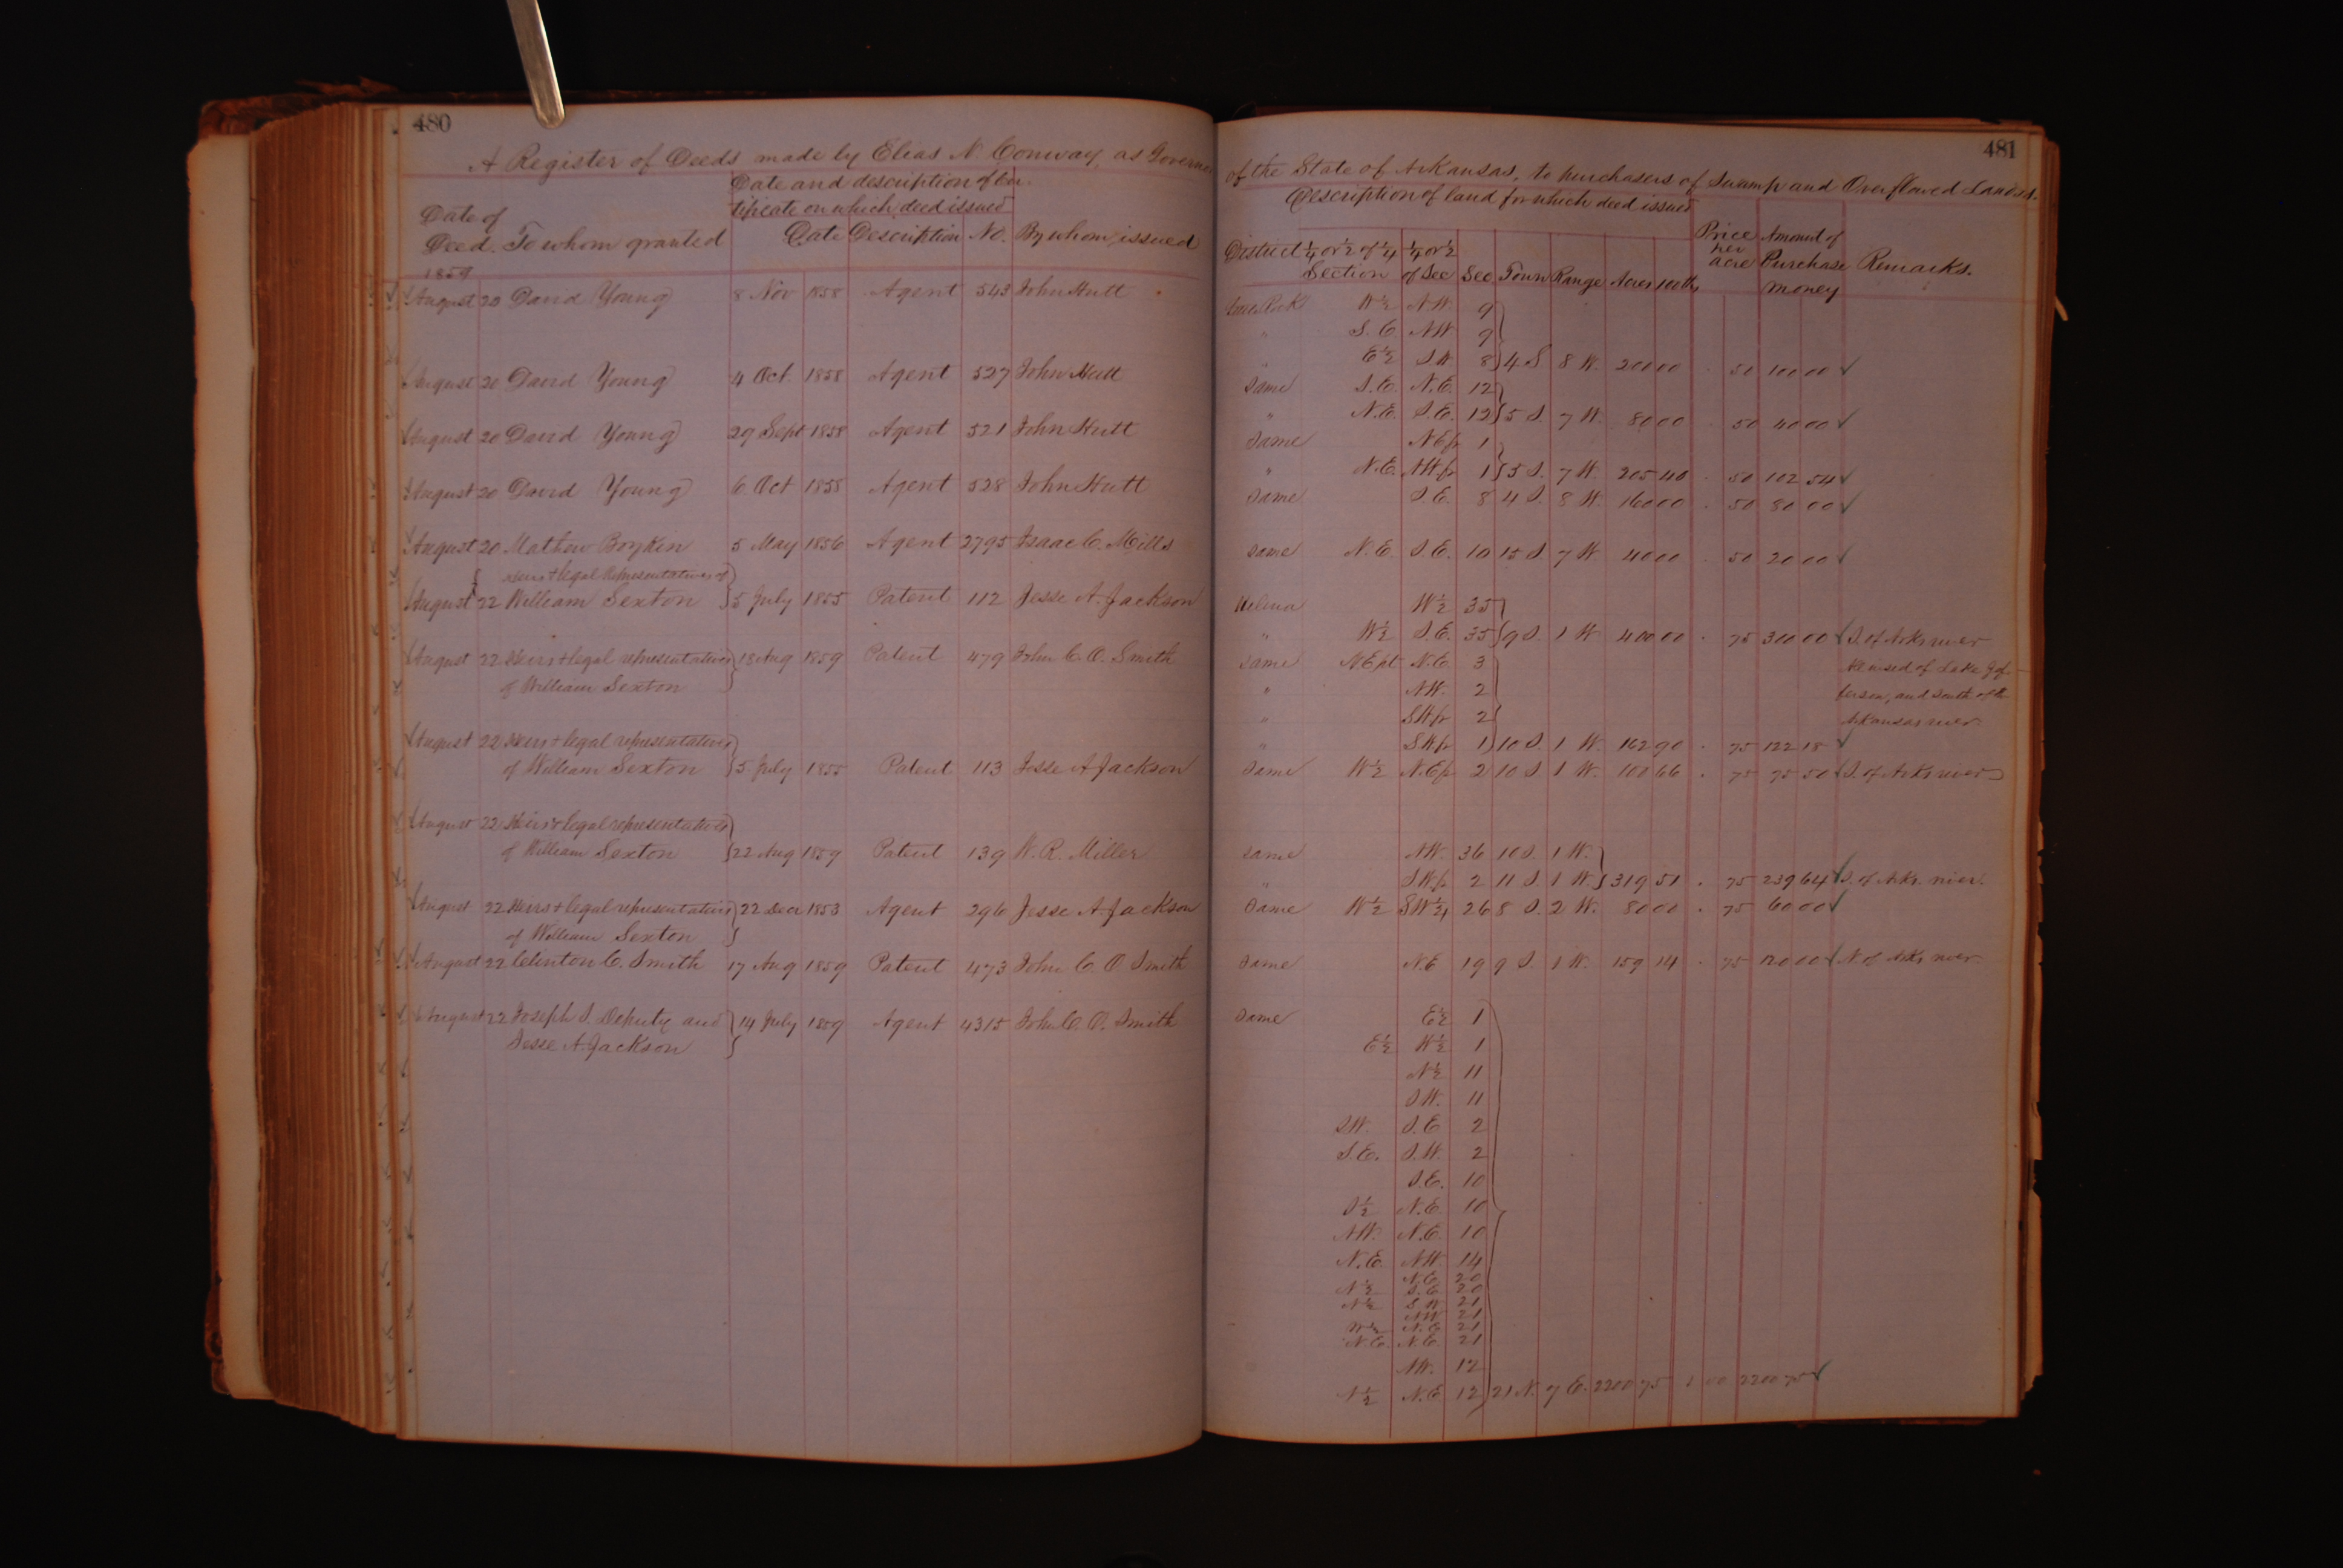 480
A Register of Deeds made by Elias N. Conway, as Governor
Date and description of cer-
tificate on which deed issued
Date of
Deed. To whom granted Date Description No. By whom issued
1859
August 20 David Young 8 Nov 1858 Agent 543 John Hutt
August 20 David Young 4 Oct. 1858 Agent 527 John Hutt
August 20 David Young 29 Sept 1858 Agent 521 John Hutt
August 20 David Young 6 Oct 1858 Agent 528 John Hutt
August 20 Mathew Boykin 5 May 1856 Agent 2795 Isaac C. Mills
Heirs + legal Representatives of
August 22 William Sexton 5 July 1855 Patent 112 Jesse A. Jackson
August 22 Heirs + legal representatives 18 Aug 1859 Patent 479 John C. O. Smith
of William Sexton
August 22 Heirs + legal representatives
of William Sexton 5 July 1855 Patent 113 Jesse A Jackson
August 22 Heirs + legal representatives
of William Sexton 22 Aug 1859 Patent 139 W. R. Miller
August 22 Heirs + legal representatives 22 Decr 1853 Agent 296 Jesse A Jackson
of William Sexton
August 22 Clinton C. Smith 17 Aug 1859 Patent 473 John C. O Smith
August 22 Joseph S. Deputy and 14 July 1859 Agent 4315 John C. O. Smith
Jesse A. Jackson
481
of the State of Arkansas, to purchasers of Swamp and Overflowed Lands.
Description of land for which deed issued
District ¼ or ½ of ¼ ¼ or ½ Price Amount of
Section of Sec Sec Town Range Acres 100ths per acre Purchase Remarks.
money
Little Rock W½ N.W. 9
" S.E. NW. 9
" E½ S W 8 4 S 8 W. 200 00 . 50 100 00 ✓
Same S.E. N.E. 12
" N.E. S.E. 12 5 S. 7 W. 80 00 . 50 40 00 ✓
Same N E fr 1
" N.E. N W. fr 1 5 S. 7 W. 205 40 . 50 102 54 ✓
Same S.E. 8 4 S. 8 W. 160 00 . 50 80 00 ✓
Same N.E. S.E. 10 15 S. 7 W 40 00 . 50 20 00 ✓
Helena W½ 35
" W½ S.E. 35 9 S. 1 W 400 00 . 75 300 00 ✓ S. of Arks river
Same N E pt N.E. 3
" N W. 2
" S W fr 2
" S W fr 1 10 S. 1 W. 162 90 . 75 122 18 ✓
All west of Lake Jef-
ferson, and South of the
Arkansas river
Same W½ N. E fr 2 10 S 1 W. 100 66 . 75 75 50 ✓ S. of Arks river
Same N W. 36 10 S. 1 W.
" S W fr 2 11 S. 1 W 319 51 . 75 239 64 ✓ S. of Arks. river.
Same W½ S W ¼ 26 8 S. 2 W. 80 00 . 75 60 00 ✓
Same N.E 19 9 S. 1 W. 159 14 . 75 120 00 ✓ N. of Arks river
Same E½ 1
E½ W½ 1
N½ 11
S W. 11
S W. S.E 2
S.E. S.W. 2
S.E. 10
S½ N.E. 10
N W. N.E. 10
N.E. N W. 14
N.E 20
N½ S.E 20
N½ S W 21
N W 21
W½ N. E 21
N.E. N.E. 21
N W. 12
N½ N.E 12 21 N. 7 E. 2200 75 1 00 2200 75 ✓